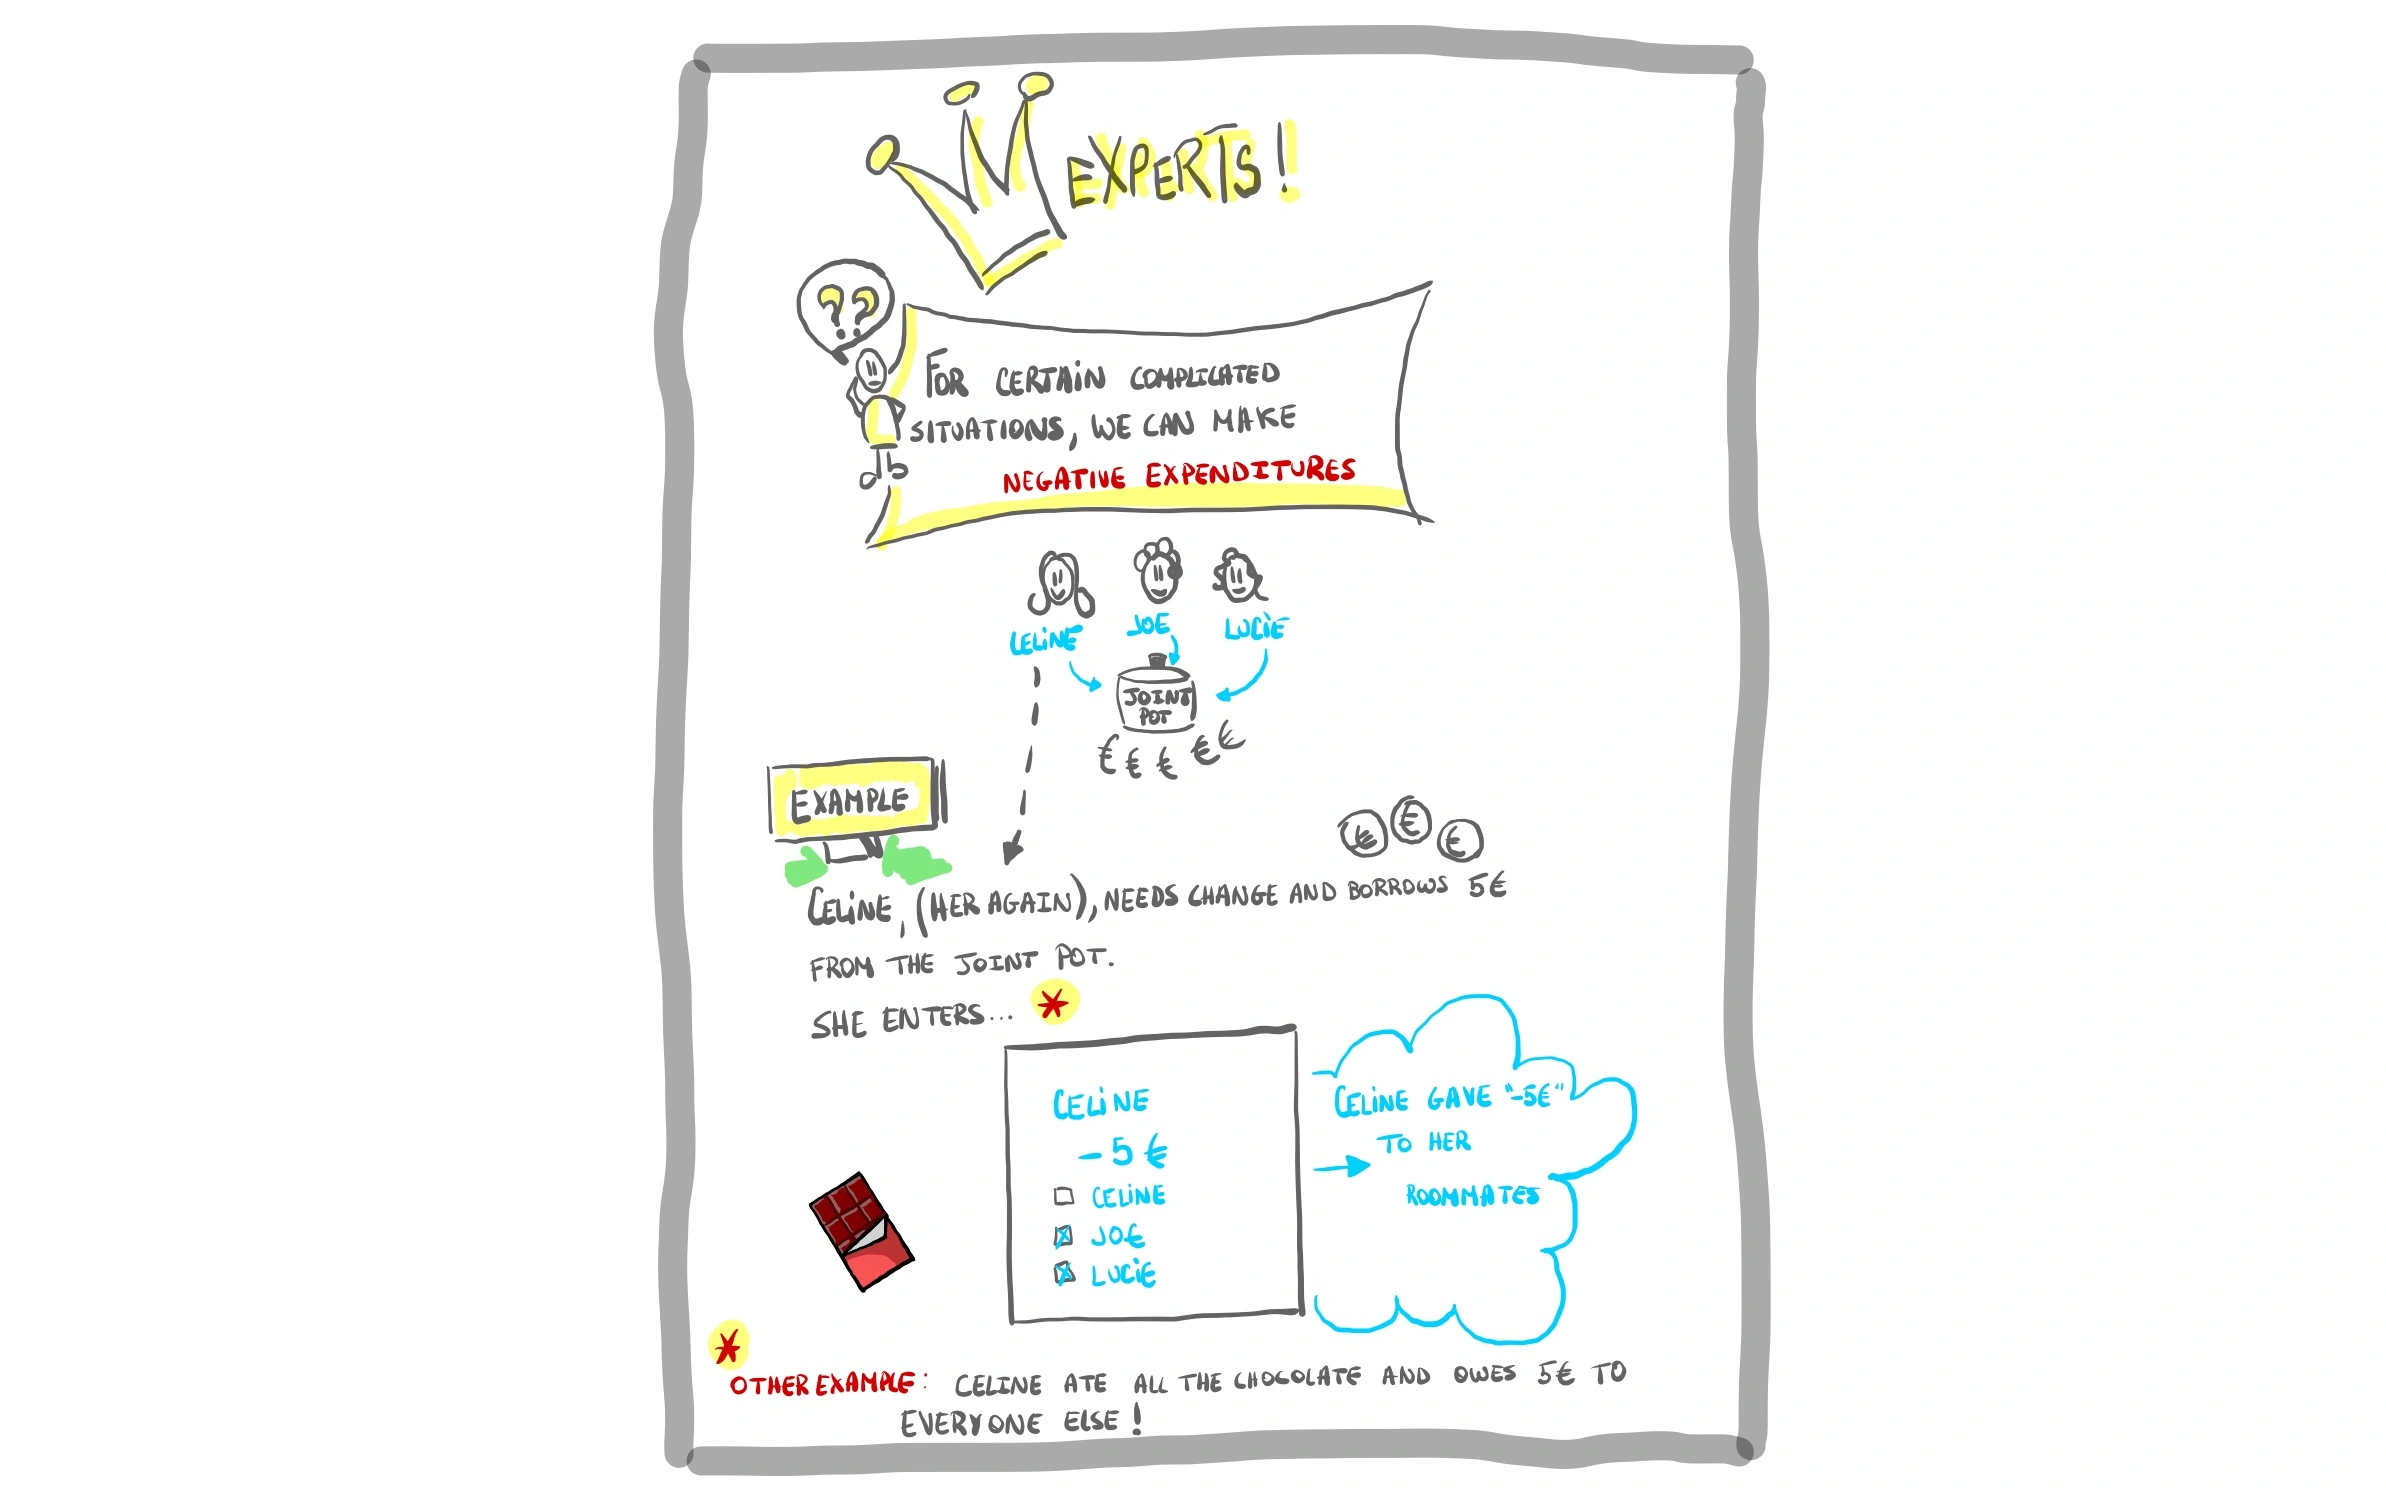 EXPERTS!
??
FOR CERTAIN COMPLICATED
SITUATIONS, WE CAN MAKE
NEGATIVE EXPENDITURES
CELINE JOE LUCIE
JOINT
POT
€ € € € €
EXAMPLE
€ € €
CELINE, (HER AGAIN), NEEDS CHANGE AND BORROWS 5€
FROM THE JOINT POT.
SHE ENTERS... *
CELINE
-5 €
CELINE
JO€
LUCIE
CELINE GAVE "-5€"
TO HER
ROOMMATES
*
OTHER EXAMPLE: CELINE ATE ALL THE CHOCOLATE AND OWES 5€ TO
EVERYONE ELSE!